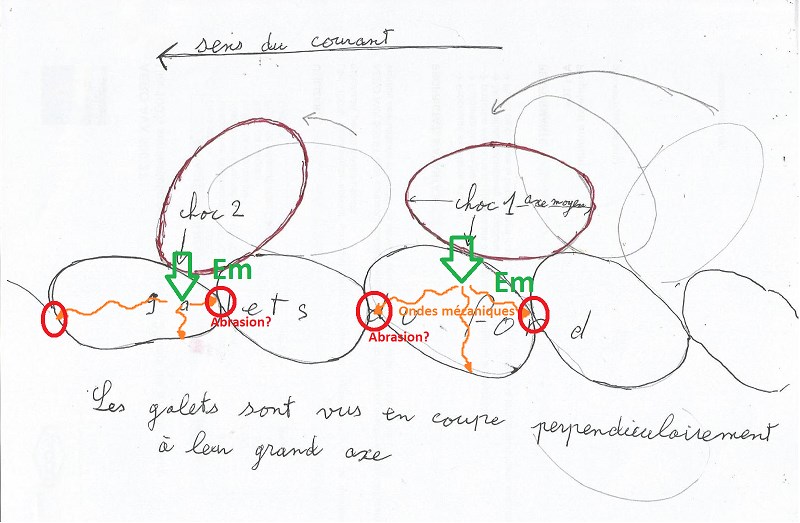 sens du courant
choc 2
choc 1 axe moyen
Em
Em
galets du fond
Ondes mécaniques
Abrasion?
Abrasion?
Les galets sont vus en coupe perpendiculairement
à leur grand axe